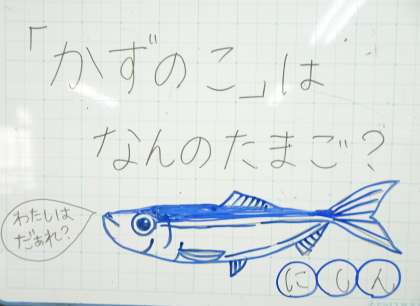 「かずのこ」は
なんのたまご？
わたしは
だぁれ？
にしん